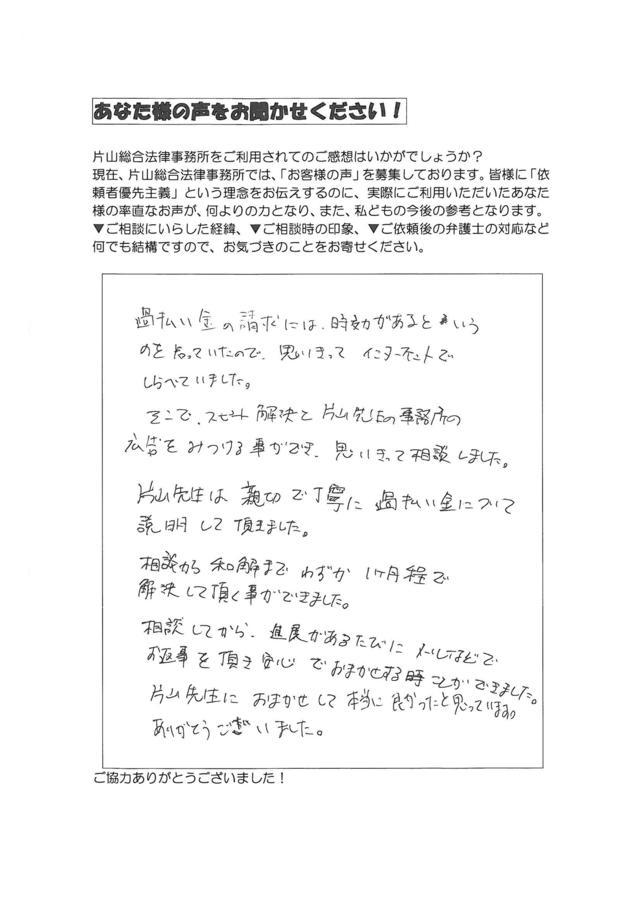 あなた様の声をお聞かせください！
片山総合法律事務所をご利用されてのご感想はいかがでしょうか？
現在、片山総合法律事務所では、「お客様の声」を募集しております。皆様に「依
頼者優先主義」という理念をお伝えするのに、実際にご利用いただいたあなた
様の率直なお声が、何よりの力となり、また、私どもの今後の参考となります。
▼ご相談にいらした経緯、▼ご相談時の印象、▼ご依頼後の弁護士の対応など
何でも結構ですので、お気づきのことをお寄せください。
過払い金の請求には、時効があるという
のを知っていたので、思いきって インターネットで
しらべていました。
そこで、スピード解決と片山先生の事務所の
広告をみつける事ができ、思いきって相談しました。
片山先生は親切で丁寧に過払い金について
説明して頂きました。
相談から和解までわずか1ヶ月程で
解決して頂く事ができました。
相談してから、進展があるたびにメールなどで
お返事を頂き安心でおまかせする時ことができました。
片山先生におまかせして本当に良かったと思っています。
ありがとうございました。
ご協力ありがとうございました！